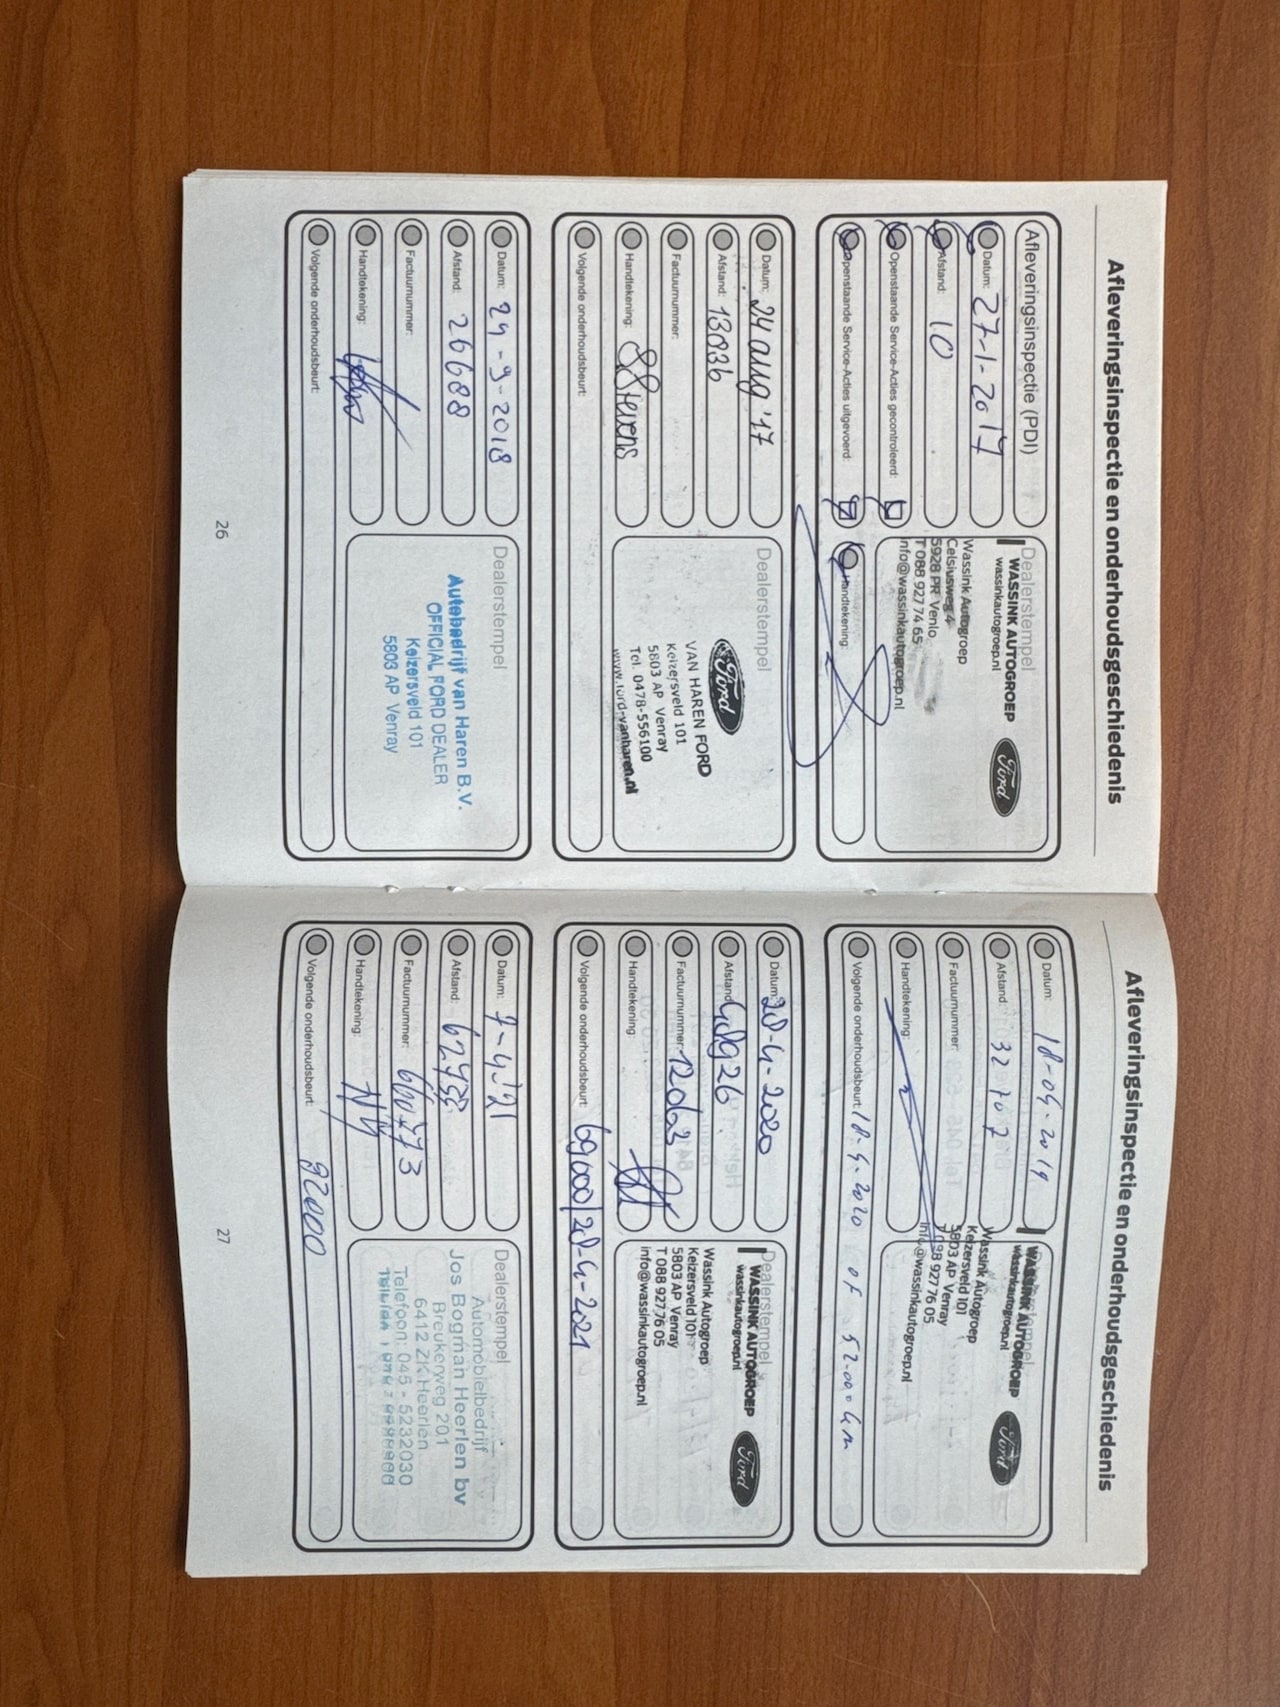 Afleveringsinspectie en onderhoudsgeschiedenis
Afleveringsinspectie (PDI)
Datum: 27-1-2017
Afstand: 10
Openstaande Service-Acties gecontroleerd:
Openstaande Service-Acties uitgevoerd:
Dealerstempel
WASSINK AUTOGROEP
wassinkautogroep.nl
Ford
Wassink Autogroep
Celsiusweg 4
5928 PR Venlo
T 088 927 74 65
info@wassinkautogroep.nl
Handtekening:
Datum: 24 aug '17
Afstand: 13836
Factuurnummer:
Handtekening: SStevens
Volgende onderhoudsbeurt:
Dealerstempel
Ford
VAN HAREN FORD
Keizersveld 101
5803 AP Venray
Tel. 0478-556100
www.ford-vanharen.nl
Datum: 24-9-2018
Afstand: 26688
Factuurnummer:
Handtekening:
Volgende onderhoudsbeurt:
Dealerstempel
Autobedrijf van Haren B.V.
OFFICIAL FORD DEALER
Keizersveld 101
5803 AP Venray
26
Afleveringsinspectie en onderhoudsgeschiedenis
Datum: 18-04-2019
Afstand: 32707
Factuurnummer:
Handtekening:
Volgende onderhoudsbeurt: 18-4-2020 OF 52.000 km
Dealerstempel
WASSINK AUTOGROEP
wassinkautogroep.nl
Ford
Wassink Autogroep
Keizersveld 101
5803 AP Venray
T 088 927 76 05
info@wassinkautogroep.nl
Datum: 28-4-2020
Afstand: 48926
Factuurnummer:
Handtekening:
Volgende onderhoudsbeurt: 69000/28-4-2021
Dealerstempel
WASSINK AUTOGROEP
wassinkautogroep.nl
Ford
Wassink Autogroep
Keizersveld 101
5803 AP Venray
T 088 927 76 05
info@wassinkautogroep.nl
Datum: 7-4-'21
Afstand:
Factuurnummer:
Handtekening:
Volgende onderhoudsbeurt: 82000
Dealerstempel
Automobielbedrijf
Jos Bogman Heerlen bv
Breukerweg 201
6412 ZK Heerlen
Telefoon: 045 - 5232030
27